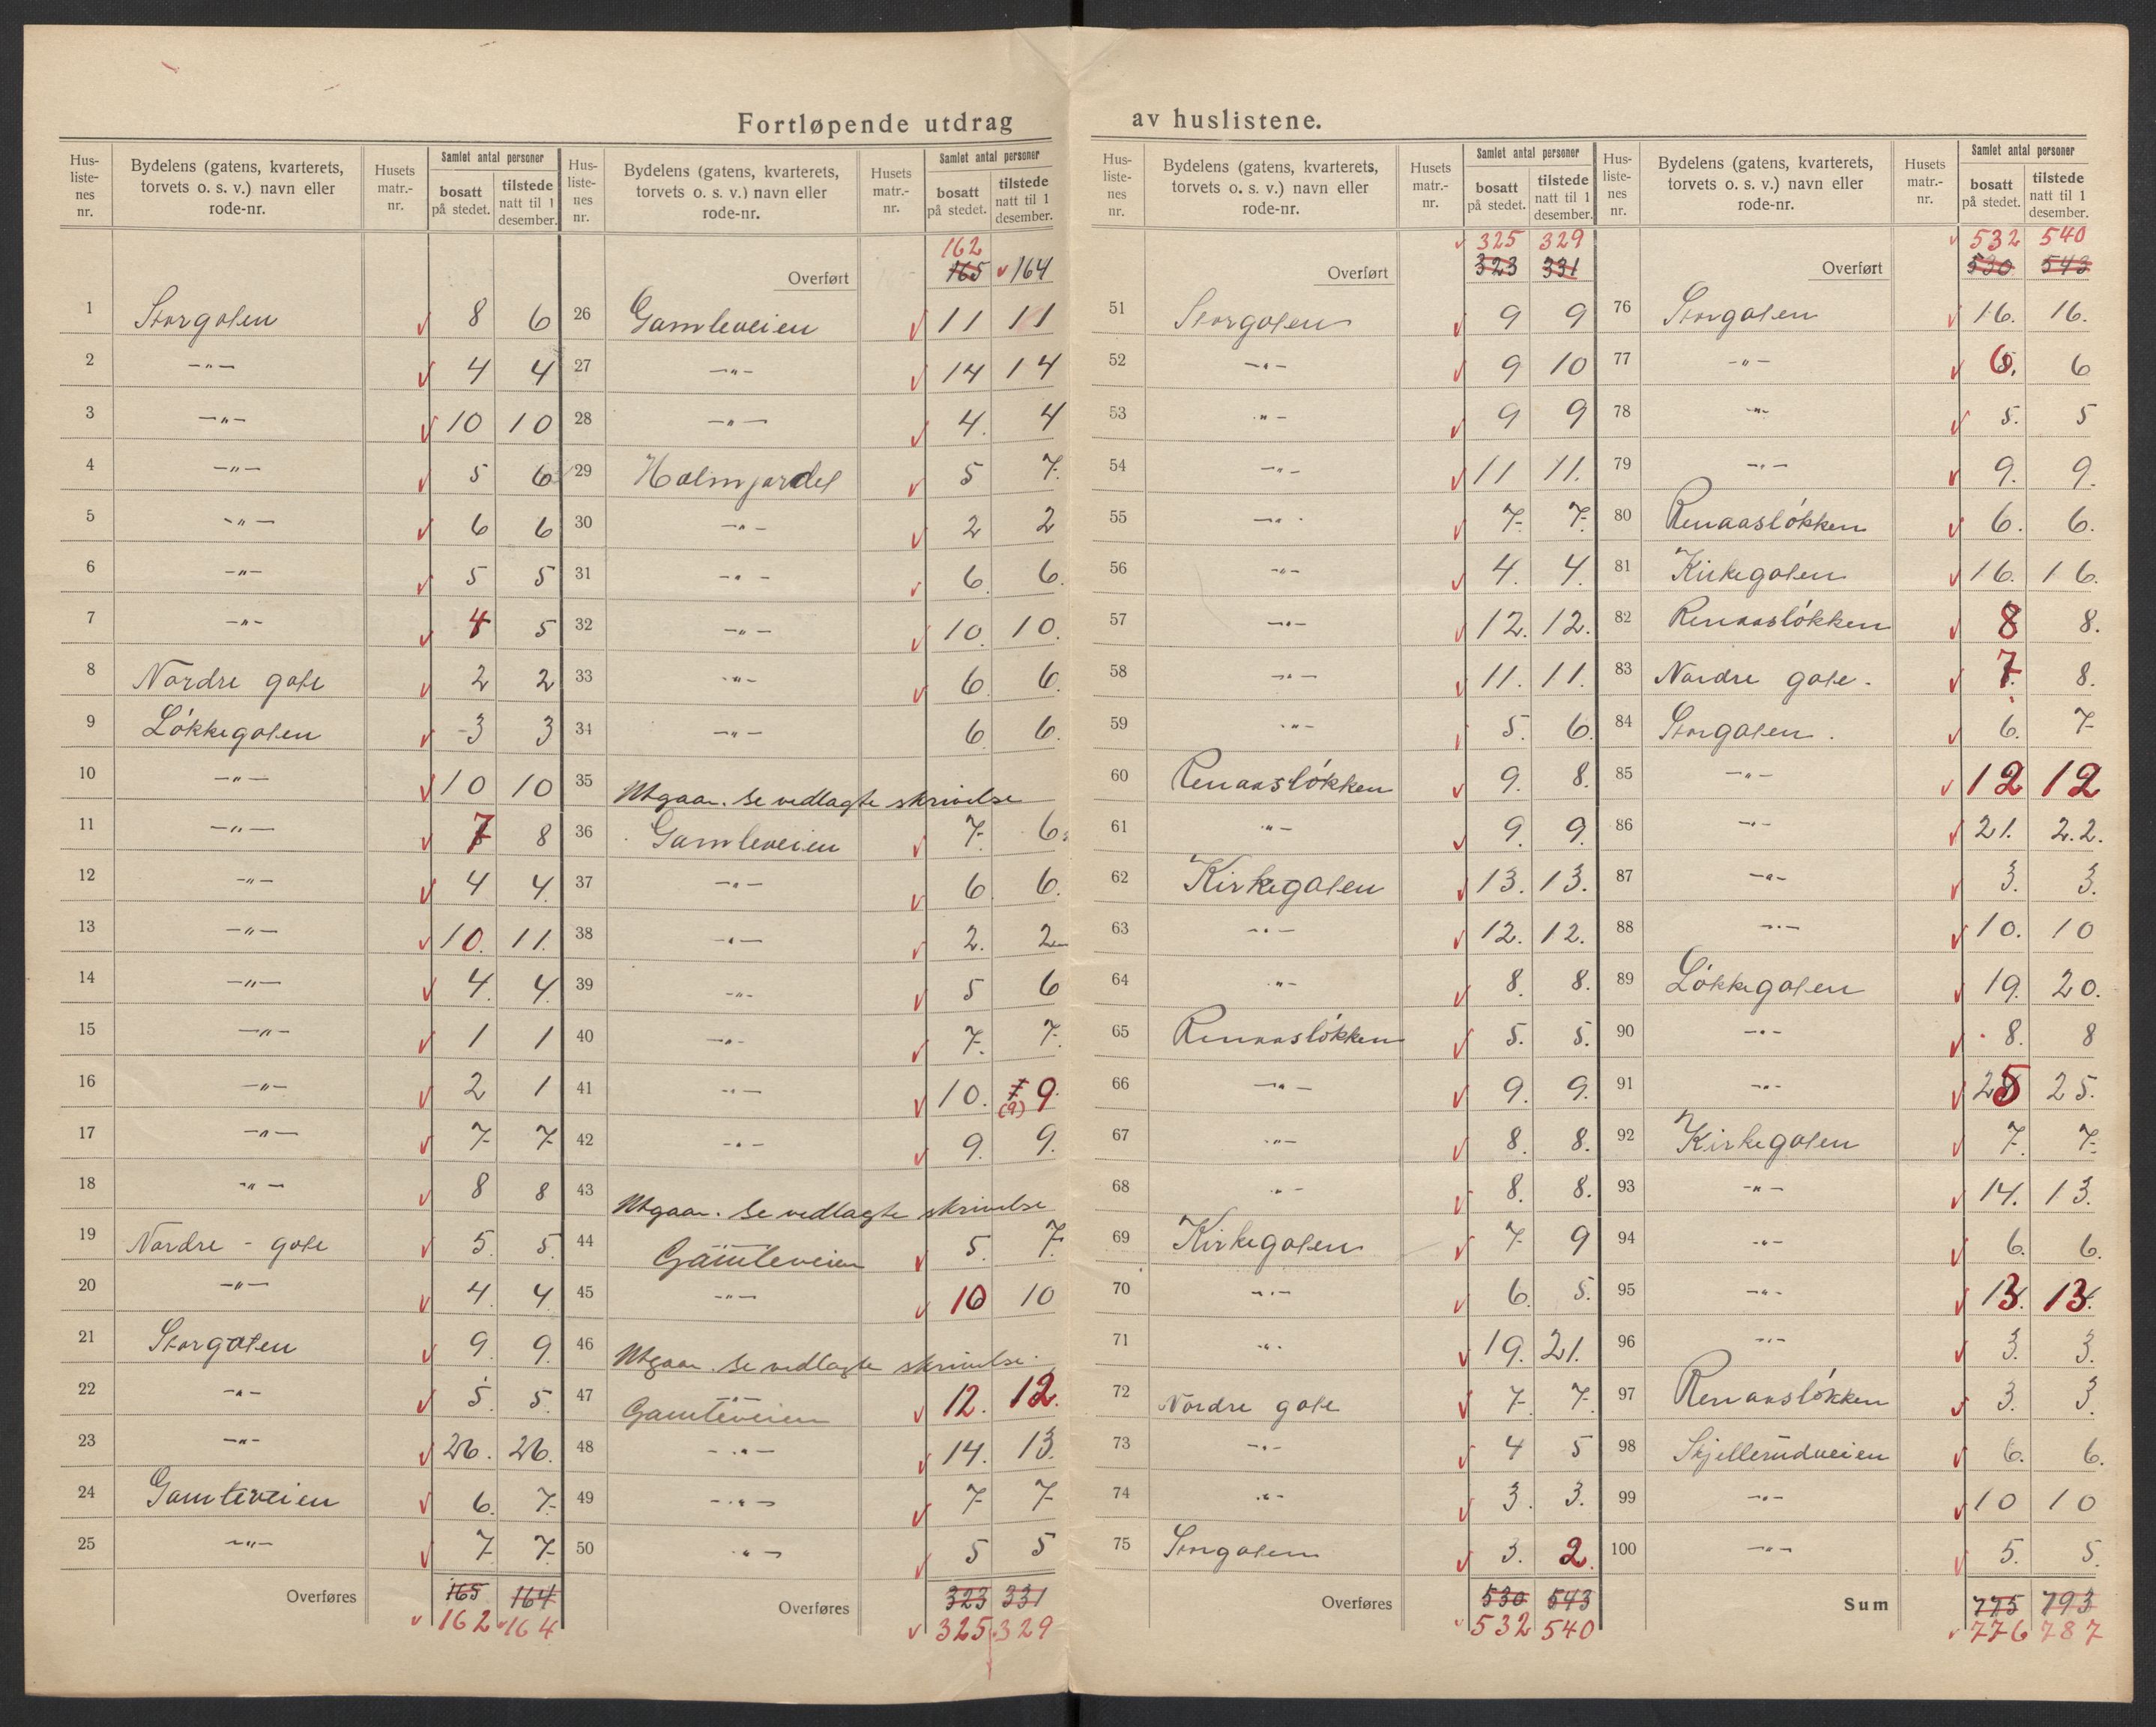 Fortløpende utdrag av huslistene.
Hus-listenes nr. | Bydelens (gatens, kvarterets, torvets o. s. v.) navn eller rode-nr. | Husets matr.-nr. | Samlet antal personer: bosatt på stedet. | tilstede natt til 1 desember.
1 Storgaten 8 6
2 —"— 4 4
3 —"— 10 10
4 —"— 5 6
5 —"— 6 6
6 —"— 5 5
7 —"— 4 5
8 Nordre gate 2 2
9 Løkkegaten 3 3
10 —"— 10 10
11 —"— 7 8
12 —"— 4 4
13 —"— 10. 11.
14 —"— 4. 4
15 —"— 1 1
16 —"— 2 1
17 —"— 7 7
18 —"— 8 8
19 Nordre - gate 5. 5.
20 —"— 4. 4
21 Storgaten 9 9.
22 —"— 5. 5.
23 —"— 26. 26.
24 Gamleveien 6. 7
25 —"— 7 7
Overføres 165 164
162 164
Hus-listenes nr. | Bydelens (gatens, kvarterets, torvets o. s. v.) navn eller rode-nr. | Husets matr.-nr. | Samlet antal personer: bosatt på stedet. | tilstede natt til 1 desember.
162
Overført 165 164
26 Gamleveien 11 11
27 —"— 14 14
28 —"— 4. 4
29 Holmjordet 5 7.
30 —"— 2 2
31 —"— 6. 6.
32 —"— 10. 10.
33 —"— 6 6.
34 —"— 6 6.
35 Utgaar. Se vedlagte skrivelse
36 Gamleveien 7. 6.
37 —"— 6. 6.
38 —"— 2. 2
39 —"— 5 6
40 —"— 7. 7.
41 —"— 10. 7 (9) 9.
42 —"— 9. 9.
43 Utgaar. Se vedlagte skrivelse
44 Gamleveien 5. 7.
45 —"— 10 10
46 Utgaar. Se vedlagte skrivelse.
47 Gamleveien 12. 12.
48 —"— 14. 13.
49 —"— 7 7
50 —"— 5 5
Overføres 323 331
325 329
Hus-listenes nr. | Bydelens (gatens, kvarterets, torvets o. s. v.) navn eller rode-nr. | Husets matr.-nr. | Samlet antal personer: bosatt på stedet. | tilstede natt til 1 desember.
325 329
Overført 323 331
51 Storgaten 9 9
52 —"— 9 10
53 —"— 9 9
54 —"— 11 11.
55 —"— 7. 7.
56 —"— 4. 4.
57 —"— 12. 12.
58 —"— 11. 11.
59 —"— 5. 6.
60 Renaasløkken 9. 8.
61 —"— 9. 9.
62 Kirkegaten 13. 13.
63 —"— 12. 12.
64 —"— 8. 8.
65 Renaasløkken 5. 5.
66 —"— 9. 9.
67 —"— 8. 8.
68 —"— 8. 8.
69 Kirkegaten 7 9
70 —"— 6. 5.
71 —"— 19. 21.
72 Nordre gate 7. 7.
73 —"— 4 5
74 —"— 3. 3.
75 Storgaten 3. 2.
Overføres 530 543
532 540
Hus-listenes nr. | Bydelens (gatens, kvarterets, torvets o. s. v.) navn eller rode-nr. | Husets matr.-nr. | Samlet antal personer: bosatt på stedet. | tilstede natt til 1 desember.
532 540
Overført 530 543
76 Storgaten 16. 16.
77 —"— 6. 6
78 —"— 5. 5
79 —"— 9. 9.
80 Renaasløkken 6. 6.
81 Kirkegaten 16. 16.
82 Renaasløkken 8 8.
83 Nordre gate. 7. 8.
84 Storgaten. 6. 7
85 —"— 12 12
86 —"— 21. 22.
87 —"— 3. 3.
88 —"— 10. 10
89 Løkkegaten 19. 20.
90 —"— 8. 8
91 —"— 25 25.
92 Kirkegaten 7. 7.
93 —"— 14. 13.
94 —"— 6. 6.
95 —"— 13. 13.
96 —"— 3. 3.
97 Renaasløkken 3. 3.
98 Skjellerudveien 6. 6.
99 —"— 10 10
100 —"— 5. 5.
Sum 775 793
776 787